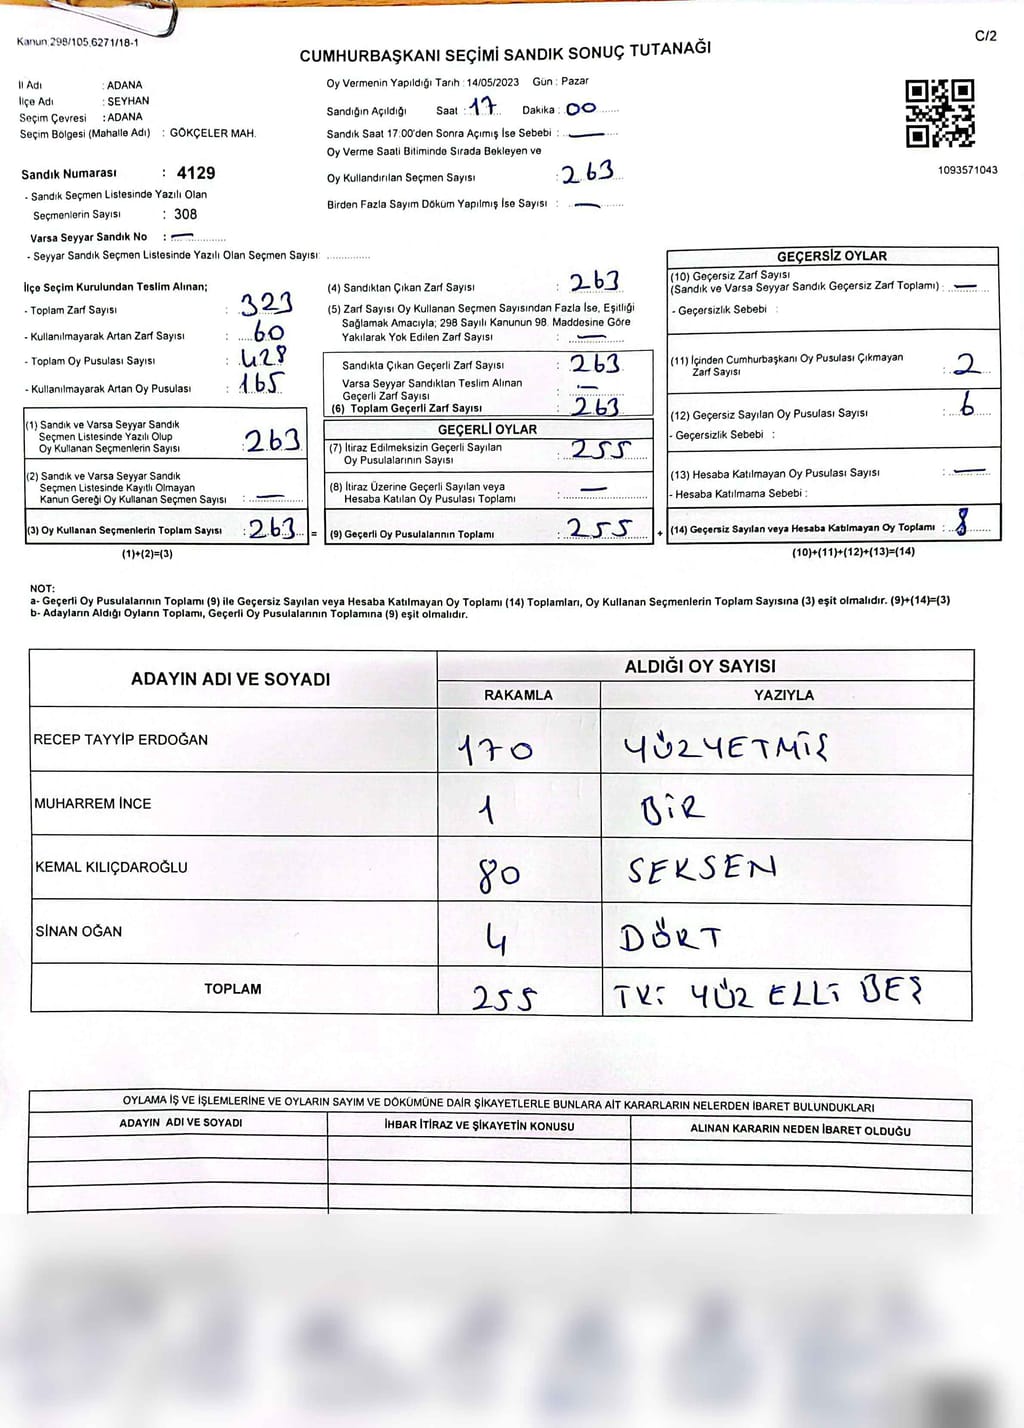 Kanun 298/105,6271/18-1
C/2
CUMHURBAŞKANI SEÇİMİ SANDIK SONUÇ TUTANAĞI
İl Adı : ADANA
İlçe Adı : SEYHAN
Seçim Çevresi : ADANA
Seçim Bölgesi (Mahalle Adı) : GÖKÇELER MAH.
Sandık Numarası : 4129
- Sandık Seçmen Listesinde Yazılı Olan
Seçmenlerin Sayısı : 308
Varsa Seyyar Sandık No : —
- Seyyar Sandık Seçmen Listesinde Yazılı Olan Seçmen Sayısı: ..............
Oy Vermenin Yapıldığı Tarih : 14/05/2023 Gün : Pazar
Sandığın Açıldığı Saat : 17 Dakika : 00
Sandık Saat 17:00'den Sonra Açımış İse Sebebi : —
Oy Verme Saati Bitiminde Sırada Bekleyen ve
Oy Kullandırılan Seçmen Sayısı : 263
Birden Fazla Sayım Döküm Yapılmış İse Sayısı : —
1093571043
İlçe Seçim Kurulundan Teslim Alınan;
- Toplam Zarf Sayısı : 323
- Kullanılmayarak Artan Zarf Sayısı : 60
- Toplam Oy Pusulası Sayısı : 428
- Kullanılmayarak Artan Oy Pusulası : 165
(1) Sandık ve Varsa Seyyar Sandık
Seçmen Listesinde Yazılı Olup
Oy Kullanan Seçmenlerin Sayısı : 263
(2) Sandık ve Varsa Seyyar Sandık
Seçmen Listesinde Kayıtlı Olmayan
Kanun Gereği Oy Kullanan Seçmen Sayısı : —
(3) Oy Kullanan Seçmenlerin Toplam Sayısı : 263 =
(1)+(2)=(3)
(4) Sandıktan Çıkan Zarf Sayısı : 263
(5) Zarf Sayısı Oy Kullanan Seçmen Sayısından Fazla İse, Eşitliği
Sağlamak Amacıyla; 298 Sayılı Kanunun 98. Maddesine Göre
Yakılarak Yok Edilen Zarf Sayısı : —
Sandıkta Çıkan Geçerli Zarf Sayısı : 263
Varsa Seyyar Sandıktan Teslim Alınan
Geçerli Zarf Sayısı : —
(6) Toplam Geçerli Zarf Sayısı : 263
GEÇERLİ OYLAR
(7) İtiraz Edilmeksizin Geçerli Sayılan
Oy Pusulalarının Sayısı : 255
(8) İtiraz Üzerine Geçerli Sayılan veya
Hesaba Katılan Oy Pusulası Toplamı : —
(9) Geçerli Oy Pusulalarının Toplamı : 255 +
GEÇERSİZ OYLAR
(10) Geçersiz Zarf Sayısı
(Sandık ve Varsa Seyyar Sandık Geçersiz Zarf Toplamı) : —
- Geçersizlik Sebebi :
(11) İçinden Cumhurbaşkanı Oy Pusulası Çıkmayan
Zarf Sayısı : 2
(12) Geçersiz Sayılan Oy Pusulası Sayısı : 6
- Geçersizlik Sebebi :
(13) Hesaba Katılmayan Oy Pusulası Sayısı : —
- Hesaba Katılmama Sebebi :
(14) Geçersiz Sayılan veya Hesaba Katılmayan Oy Toplamı : 8
(10)+(11)+(12)+(13)=(14)
NOT:
a- Geçerli Oy Pusulalarının Toplamı (9) ile Geçersiz Sayılan veya Hesaba Katılmayan Oy Toplamı (14) Toplamları, Oy Kullanan Seçmenlerin Toplam Sayısına (3) eşit olmalıdır. (9)+(14)=(3)
b- Adayların Aldığı Oyların Toplamı, Geçerli Oy Pusulalarının Toplamına (9) eşit olmalıdır.
ADAYIN ADI VE SOYADI ALDIĞI OY SAYISI
RAKAMLA YAZIYLA
RECEP TAYYİP ERDOĞAN 170 YÜZYETMİŞ
MUHARREM İNCE 1 BİR
KEMAL KILIÇDAROĞLU 80 SEKSEN
SİNAN OĞAN 4 DÖRT
TOPLAM 255 İKİ YÜZ ELLİ BEŞ
OYLAMA İŞ VE İŞLEMLERİNE VE OYLARIN SAYIM VE DÖKÜMÜNE DAİR ŞİKAYETLERLE BUNLARA AİT KARARLARIN NELERDEN İBARET BULUNDUKLARI
ADAYIN ADI VE SOYADI İHBAR İTİRAZ VE ŞİKAYETİN KONUSU ALINAN KARARIN NEDEN İBARET OLDUĞU